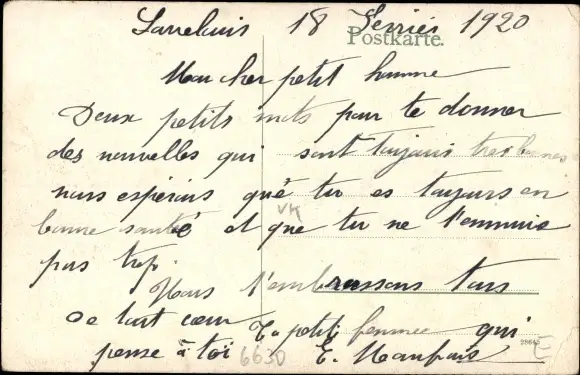 Sarrelouis 18 Fevrier 1920
Postkarte.
Mon cher petit homme
Deux petits mots pour te donner
des nouvelles qui sont toujours tres bonnes
nous espérons que tu es toujours en
bonne santé et que tu ne t'ennuie
VK
pas trop.
Nous t'embrassons tous
de tout cœur
Ta petite femmee qui
pense à toi E. Maupas
6630
E